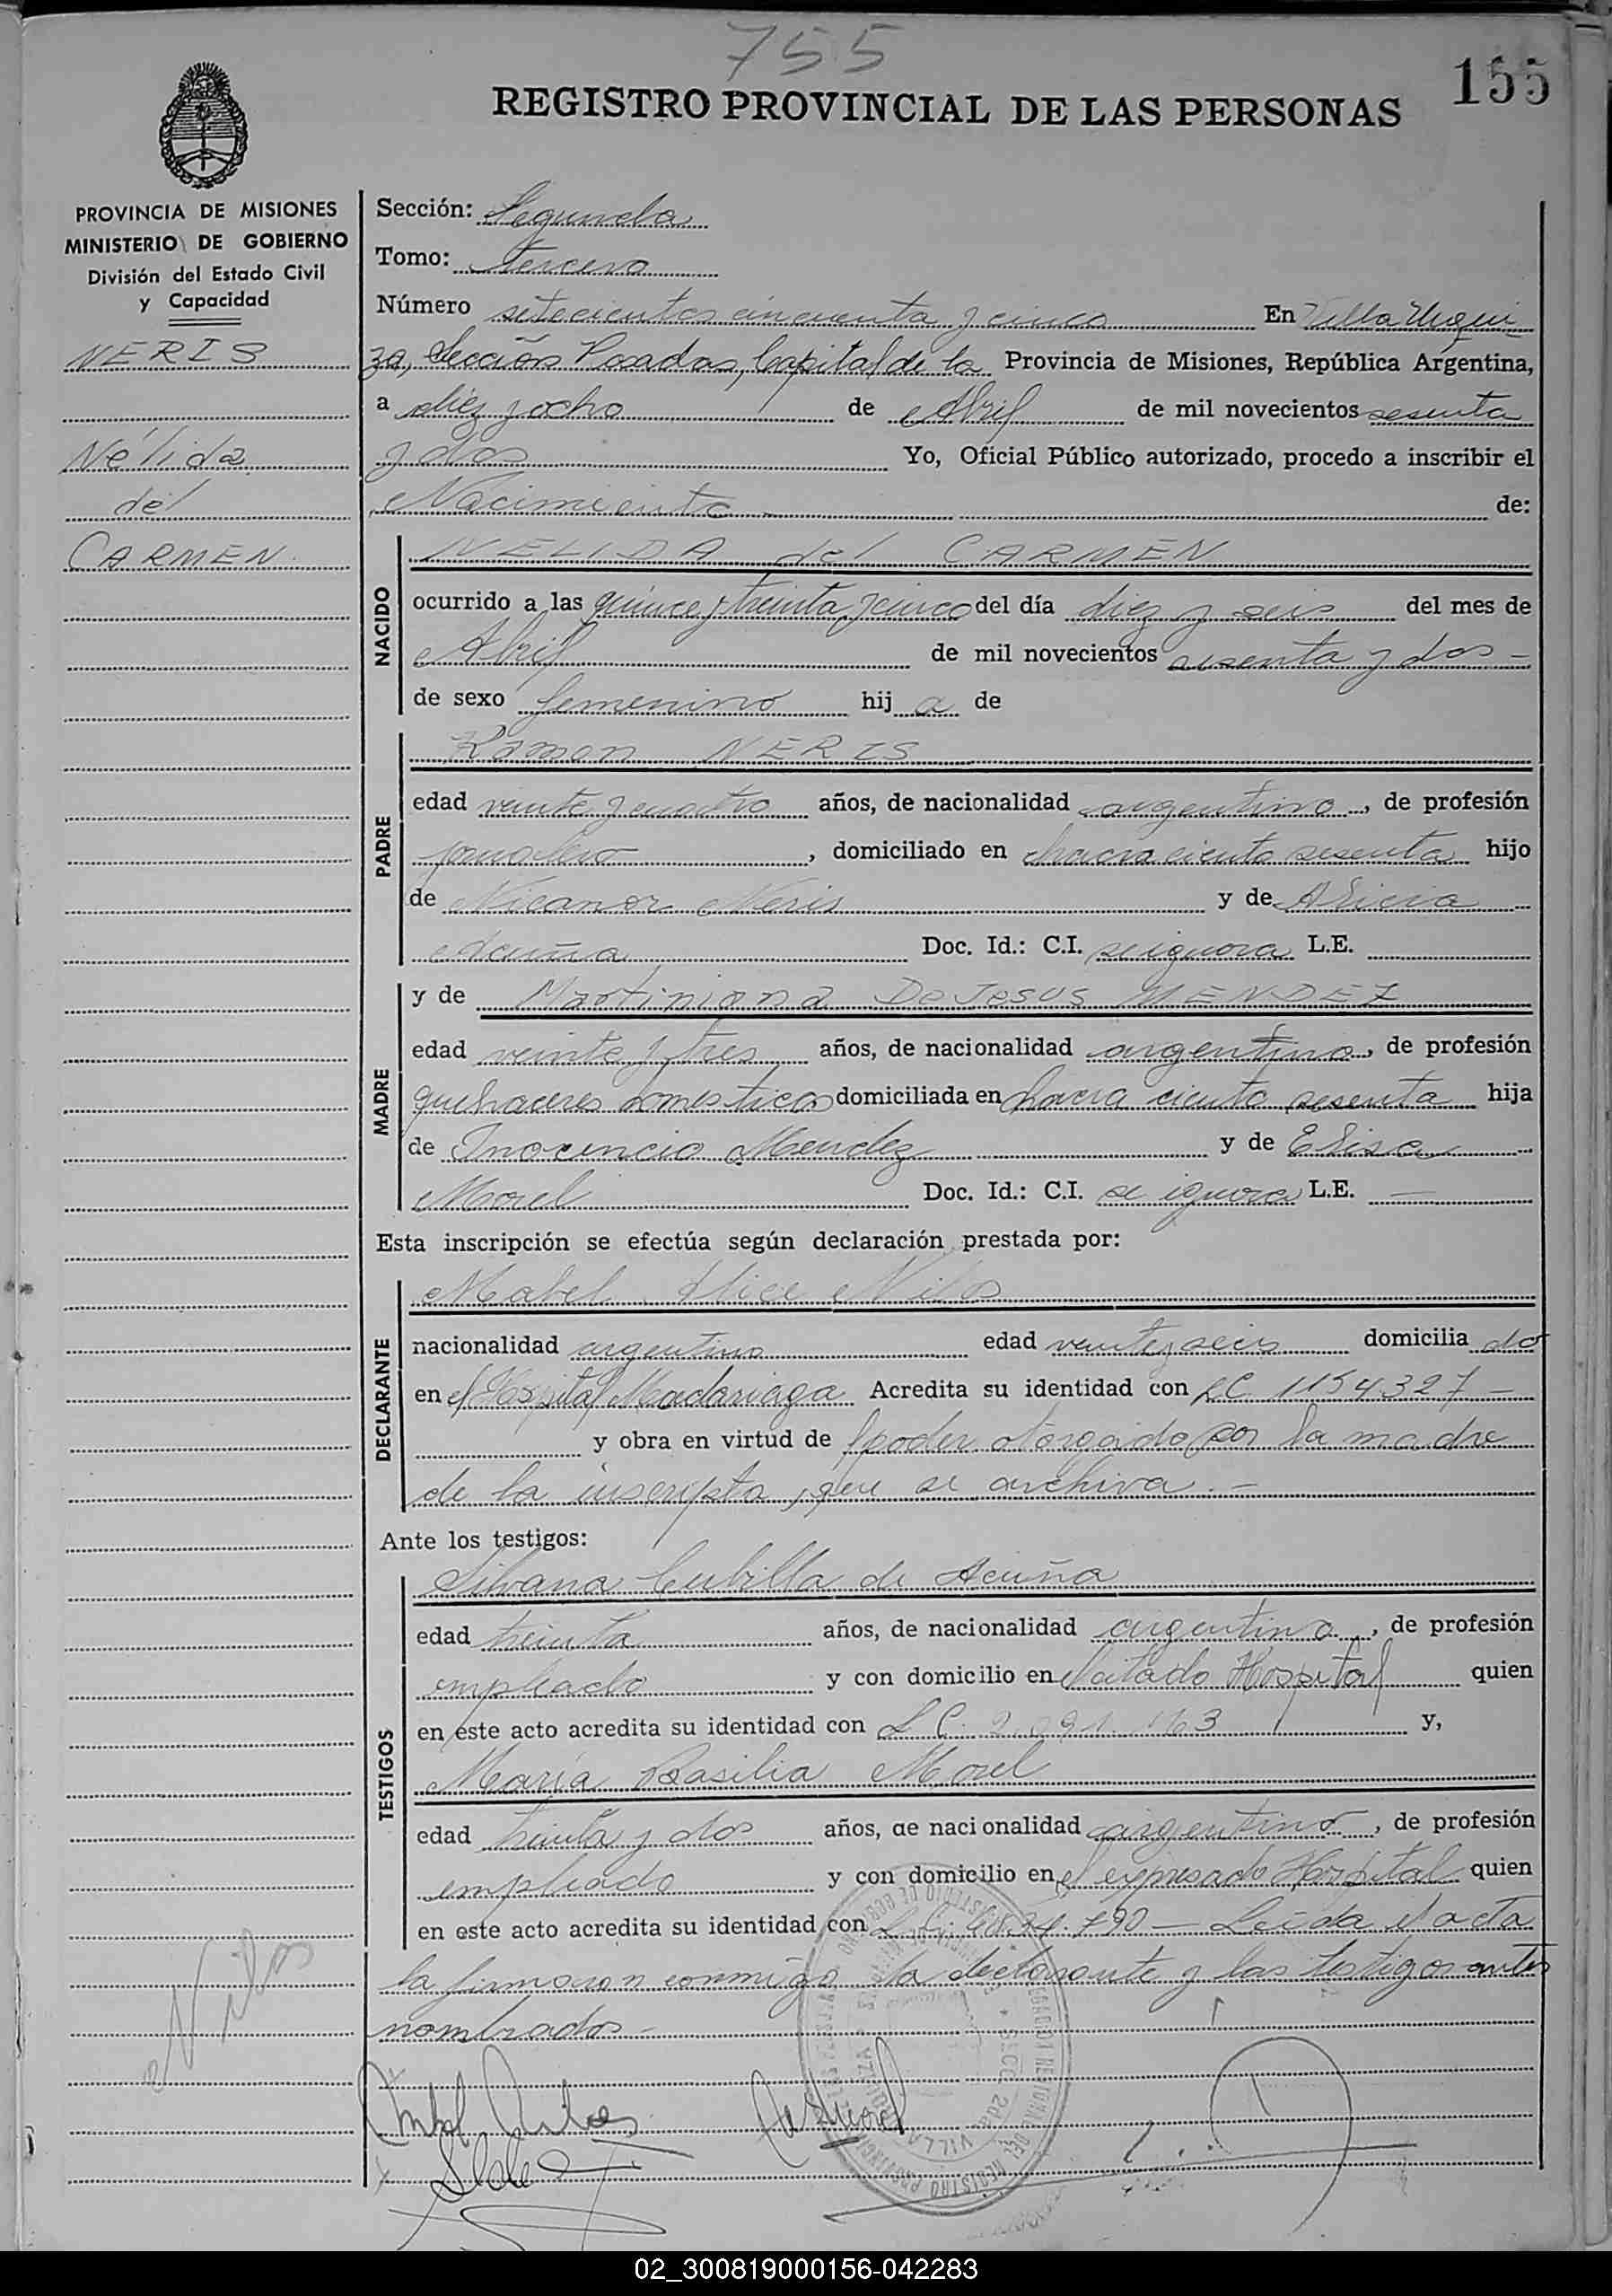 755
155
REGISTRO PROVINCIAL DE LAS PERSONAS
PROVINCIA DE MISIONES
MINISTERIO DE GOBIERNO
División del Estado Civil
y Capacidad
NERIS
Nélida
del
CARMEN
Sección: Segunda
Tomo: tercero
Número setecientos cincuenta y cinco En Villa Urqui
za, Sección Posadas, Capital de la Provincia de Misiones, República Argentina,
a diez y ocho de Abril de mil novecientos sesenta
y dos Yo, Oficial Público autorizado, procedo a inscribir el
Nacimiento de:
NACIDO
NELIDA del CARMEN
ocurrido a las quince y treinta y cinco del día diez y seis del mes de
Abril de mil novecientos sesenta y dos -
de sexo femenino hij a de
PADRE
Ramon NERIS
edad veinte y cuatro años, de nacionalidad argentino, de profesión
jornalero, domiciliado en chacra ciento sesenta hijo
de Nicanor Neris y de Alicia
Acuña Doc. Id.: C.I. se ignora L.E.
MADRE
y de Martiniana De Jesus MENDEZ
edad veinte y tres años, de nacionalidad argentina, de profesión
quehaceres domesticos domiciliada en chacra ciento sesenta hija
de Inocencio Mendez y de Elisa
Morel Doc. Id.: C.I. se ignora L.E. —
Esta inscripción se efectúa según declaración prestada por:
DECLARANTE
Mabel Alice Nilos
nacionalidad argentina edad veinte y seis domicilia da
en el Hospital Madariaga Acredita su identidad con LC 1154327 —
y obra en virtud de poder otorgado por la madre
de la inscripta, que se archiva. —
Ante los testigos:
TESTIGOS
Silvana Cubilla de Acuña
edad treinta años, de nacionalidad argentina, de profesión
empleada y con domicilio en el citado Hospital quien
en este acto acredita su identidad con L.C. 2.091.163 y,
Maria Basilia Morel
edad treinta y dos años, de nacionalidad argentina, de profesión
empleada y con domicilio en el expresado Hospital quien
en este acto acredita su identidad con — Leida el acta
la firmaron conmigo la declarante y las testigos antes
nombrados -
Nilos
02_300819000156-042283